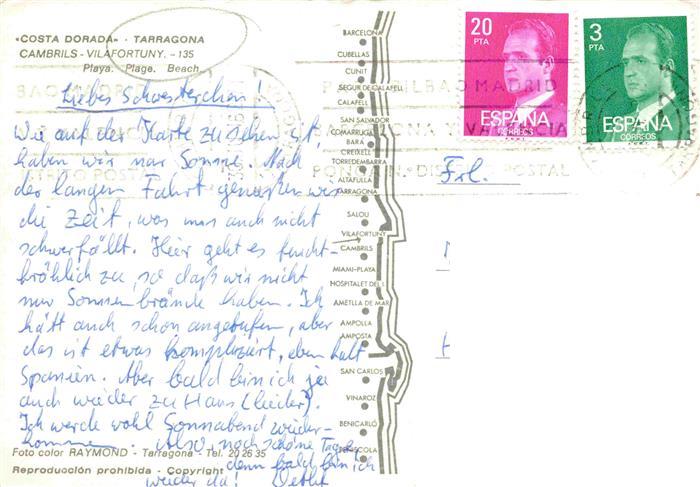 «COSTA DORADA» - TARRAGONA
CAMBRILS - VILAFORTUNY. - 135
Playa. Plage. Beach
Liebes Schwesterchen!
Wie auf der Karte zu sehen ist,
haben wir nur Sonne. Nach
der langen Fahrt genießen wir
die Zeit, was uns auch nicht
schwerfällt. Hier geht es feucht-
fröhlich zu, so daß wir nicht
nur Sonnenbrände haben. Ich
hätt auch schon angerufen, aber
das ist etwas kompliziert, eben halt
Spanien. Aber bald bin ich ja
auch wieder zu Haus (leider).
Ich werde wohl Sonnabend wieder-
kommen. Also, noch schöne Tage
denn bald bin ich
wieder da!
Foto color RAYMOND - Tarragona - Tel. 20 26 35
Reproducción prohibida - Copyright
BARCELONA
CUBELLAS
CUNIT
SEGUR DE CALAFELL
CALAFELL
SAN SALVADOR
COMARRUGA
BARA
CREIXELL
TORREDEMBARRA
ALTAFULLA
TARRAGONA
SALOU
VILAFORTUNY
CAMBRILS
MIAMI-PLAYA
HOSPITALET DEL I.
AMETLLA DE MAR
AMPOLLA
AMPOSTA
SAN CARLOS
VINAROZ
BENICARLÓ
PEÑISCOLA
20
PTA
ESPAÑA
CORREOS
3
PTA
ESPAÑA
CORREOS
BILBAO MADRID
DISTRITO POSTAL
Frl.